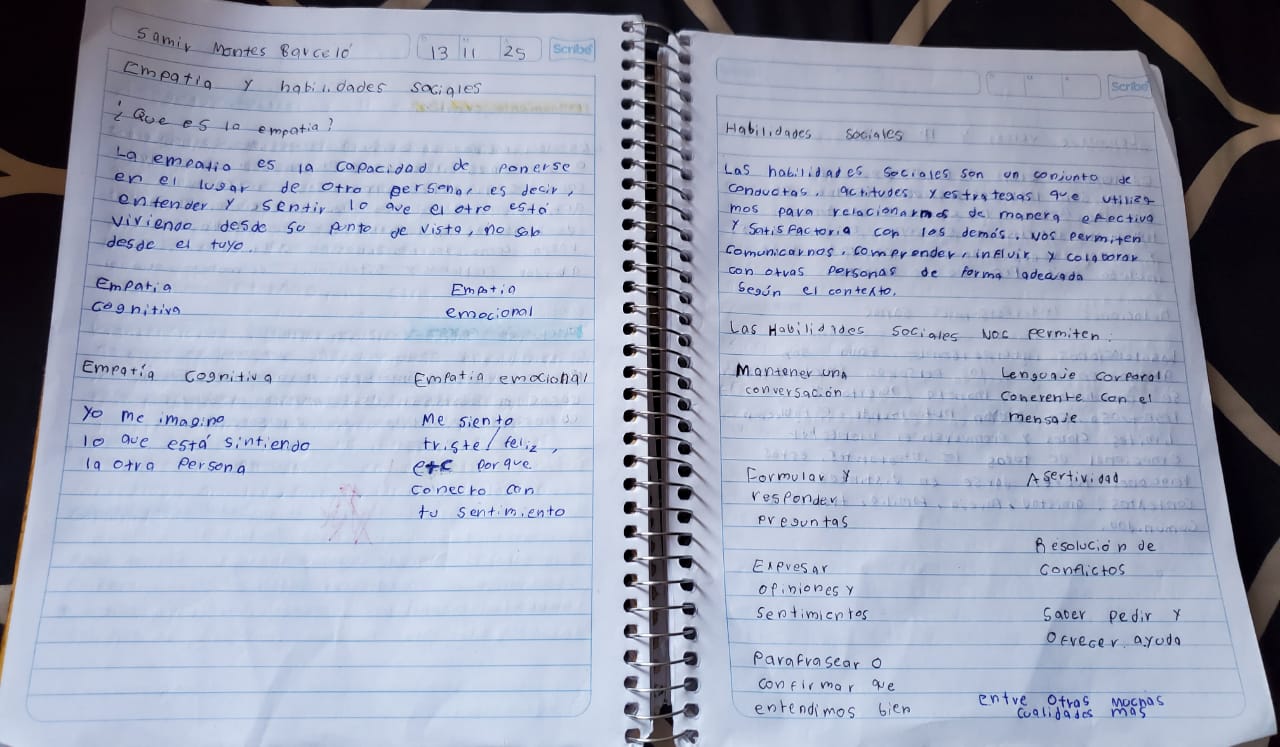 Samir Montes Barceló 13 11 25 Scribe
Empatia y habilidades sociales
¿Que es la empatia?
La empatia es la capacidad de ponerse
en el lugar de otro persona, es decir,
entender y sentir lo que el otro está
viviendo desde su punto de vista, no solo
desde el tuyo.
Empatia
cognitiva
Empatia
emocional
Empatía cognitiva
Yo me imagino
lo que está sintiendo
la otra persona
Empatia emocional
Me siento
triste/feliz,
etc porque
conecto con
tu sentimiento
Scribe
Habilidades sociales
Las habilidades sociales son un conjunto de
conductas, actitudes y estrategias que utiliza
mos para relacionarnos de manera efectiva
y satisfactoria con los demás. Nos permiten
comunicarnos, comprender, influir y colaborar
con otras personas de forma adecuada
según el contexto.
Las Habilidades sociales nos permiten:
Mantener una
conversación
Formular y
responder
preguntas
Expresar
opiniones y
sentimientos
Parafrasear o
confirmar que
entendimos bien
Lenguaje corporal
coherente con el
mensaje
Asertividad
Resolución de
conflictos
Saber pedir y
ofrecer ayuda
entre otras muchas
cualidades mas